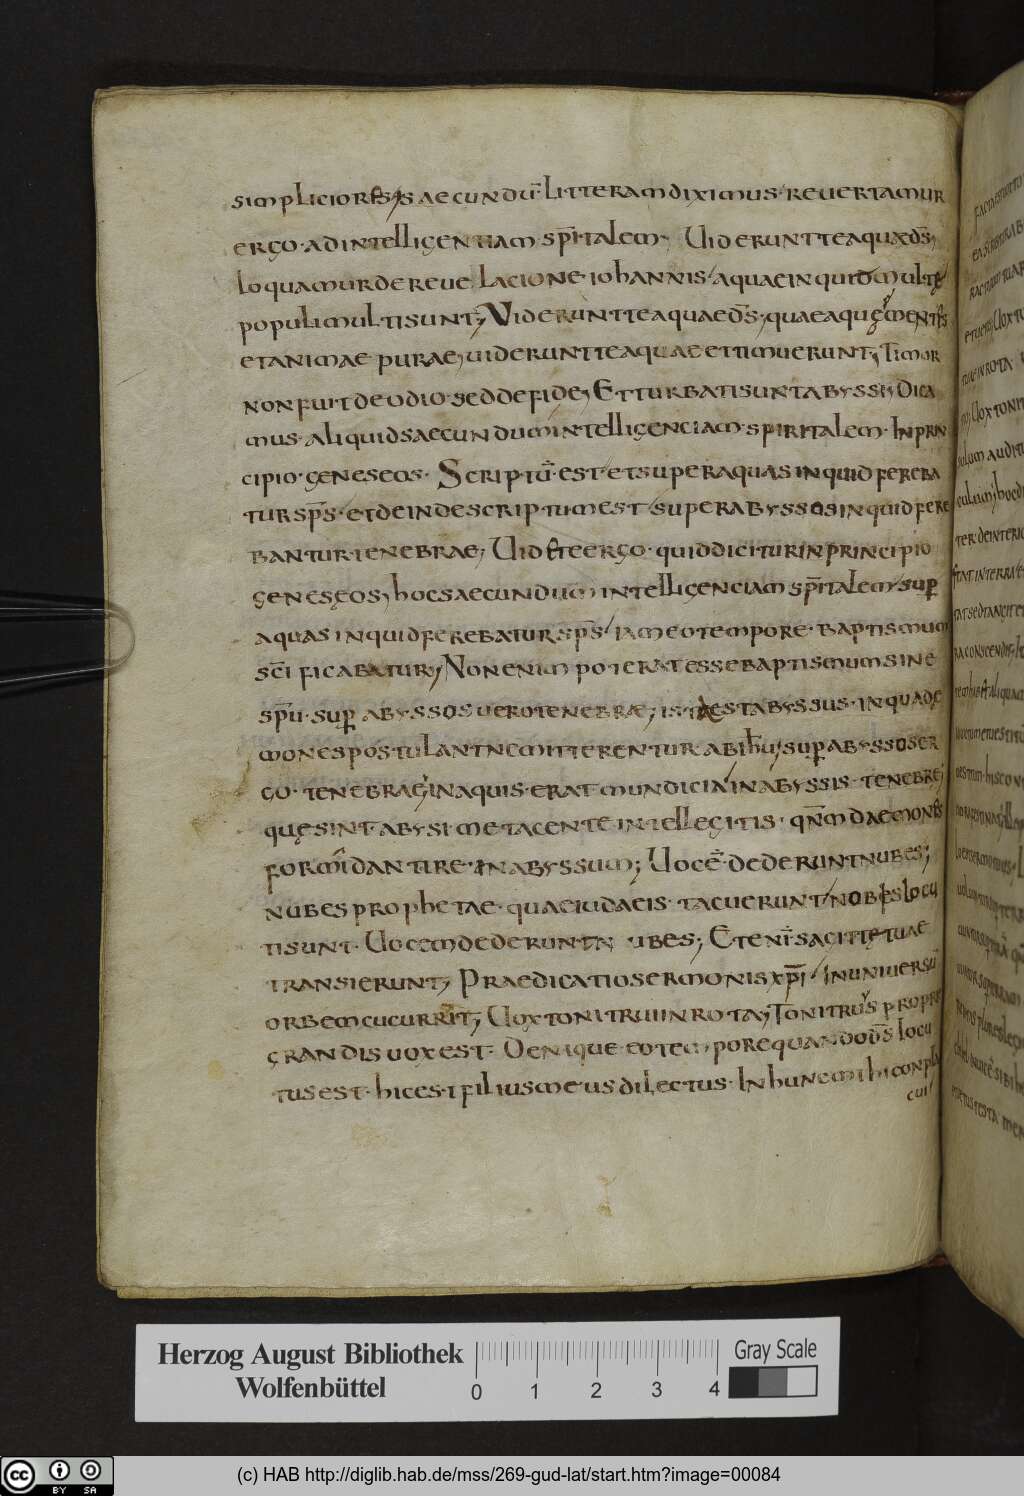 simpliciores; saecundū litteram diximus· reuertamur
ergo· ad intelligentiam sp̄italem· Uiderunt te aquæ d̄s;
loquamur de reuelacione· iohannis· aquae inquid multe
populi multi sunt; Uiderunt te aquae d̄s; quae aquę mentes
et animae purae; uiderunt te aquae et timuerunt; Timor
non fuit de odio sed de fide; Et turbati sunt abyssi; Dica
mus· aliquid saecundum intelligenciam· spiritalem· In prin
cipio· geneseos· Scriptū est· et super aquas inquid fereba
tur sp̄s· et deinde scriptum est super abyssos inquid fere
bantur tenebrae; Uidete ergo· quid dicitur in principio
geneseos; hoc saecundum intelligenciam sp̄italem sup
aquas inquid ferebatur sp̄s iam eo tempore· baptismum
sc̄i ficabatur; Non enim poterat esse baptismum sine
sp̄u· sup abyssos uero tenebræ; ista est abyssus· in qua de
mones postulant ne mitterentur ab ih̄u; sup abyssos er
go· tenebrae; in aquis· erat mundicia in abyssis· tenebre;
quę sint abysi metacente intellegitis· qn̄m daemones
formidant ire· in abyssum; Uocē· dederunt nubes;
nubes prophetae· quae iudaeis· tacuerunt nobis locu
ti sunt· Uocem dederunt nubes; Etenī sagittę tuae
transierunt; Praedicatio sermonis xp̄i in uniuersū
orbem cucurrit; Uox tonitrui in rota; Tonitrus propre
grandis uox est· Denique eo tempore quando d̄s locu
tus est· hic est filius meus dilectus· In hunc mihi conpla
cui
Herzog August Bibliothek
Wolfenbüttel
0 1 2 3 4
Gray Scale
cc BY SA
(c) HAB http://diglib.hab.de/mss/269-gud-lat/start.htm?image=00084